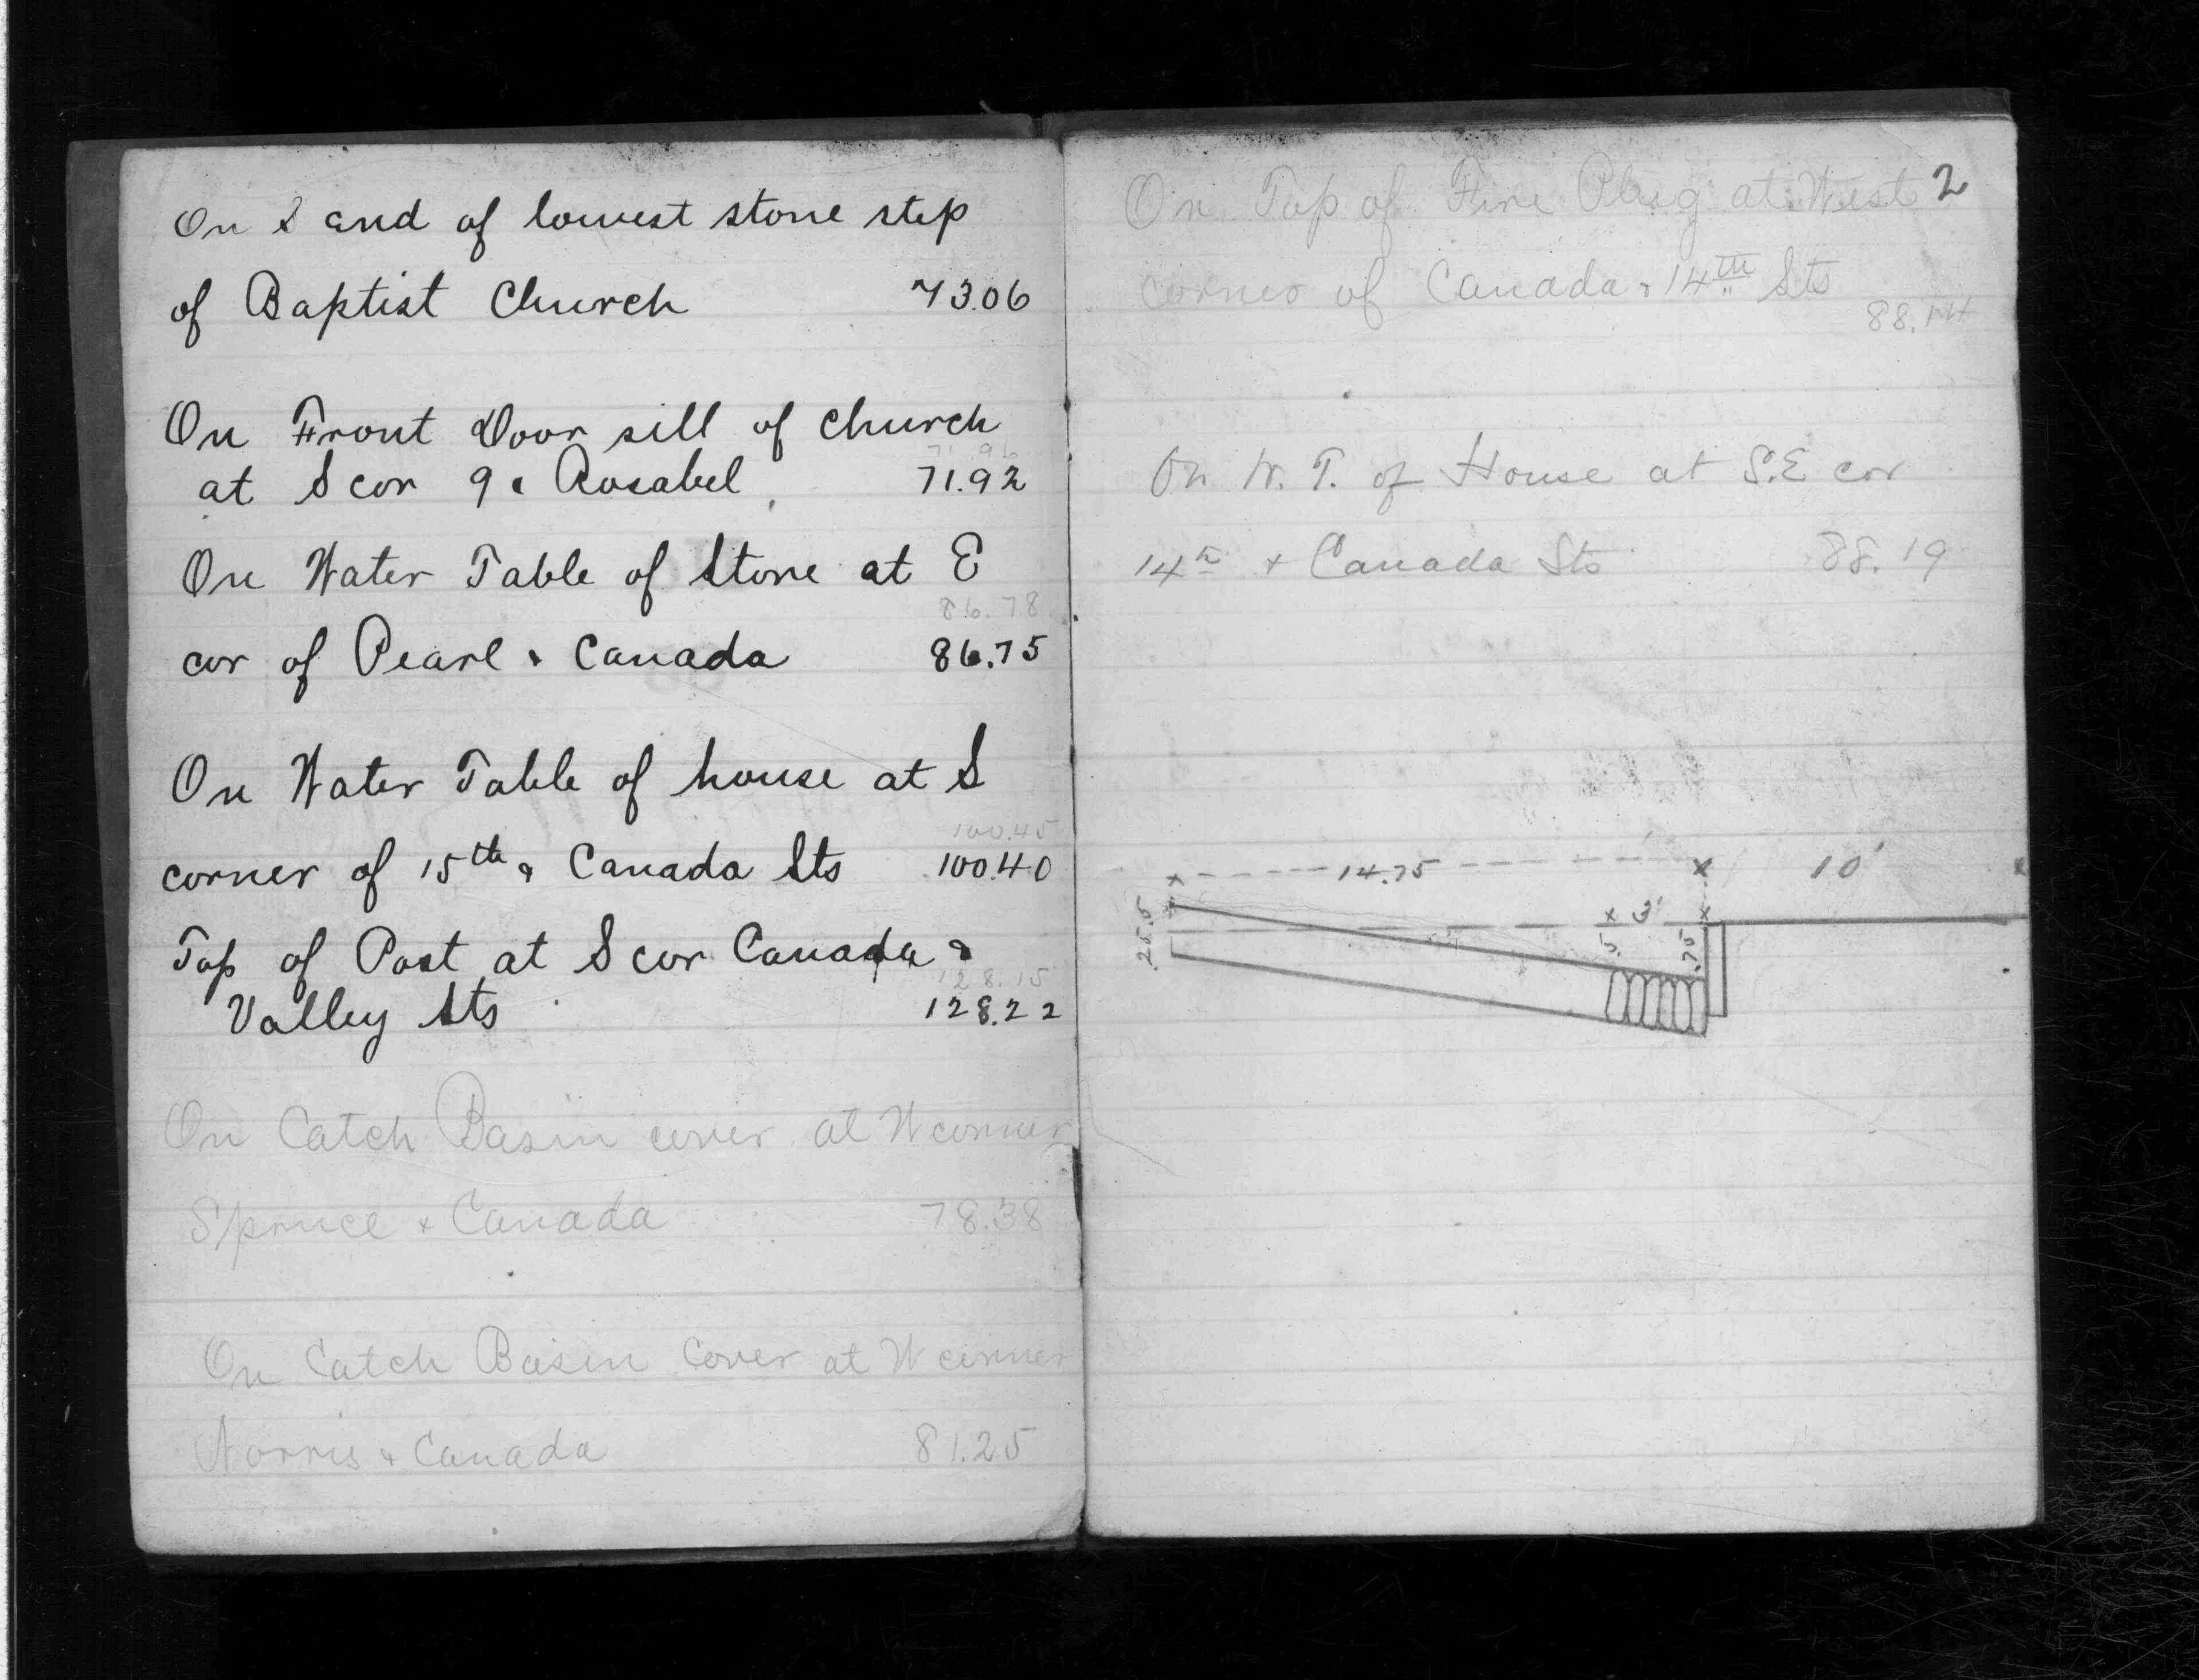 On S end of lowest stone step
of Baptist Church 73.06
On Front Door sill of church
71.96
at S cor 9 & Rosabel 71.92
On Water Table of Store at E
86.78
cor of Pearl & Canada 86.75
On Water Table of house at S
100.45
corner of 15th & Canada Sts 100.40
Top of Post at S cor Canada &
128.15
Valley Sts 128.22
On Catch Basin cover at W corner
Spruce & Canada 78.38
On Catch Basin Cover at W corner
Norris & Canada 81.25
2
On Top of Fire Plug at West
corner of Canada & 14th Sts
88.14
On W. T. of House at S.E cor
14th + Canada Sts 88.19
14.75 10'
3'
.5 .75